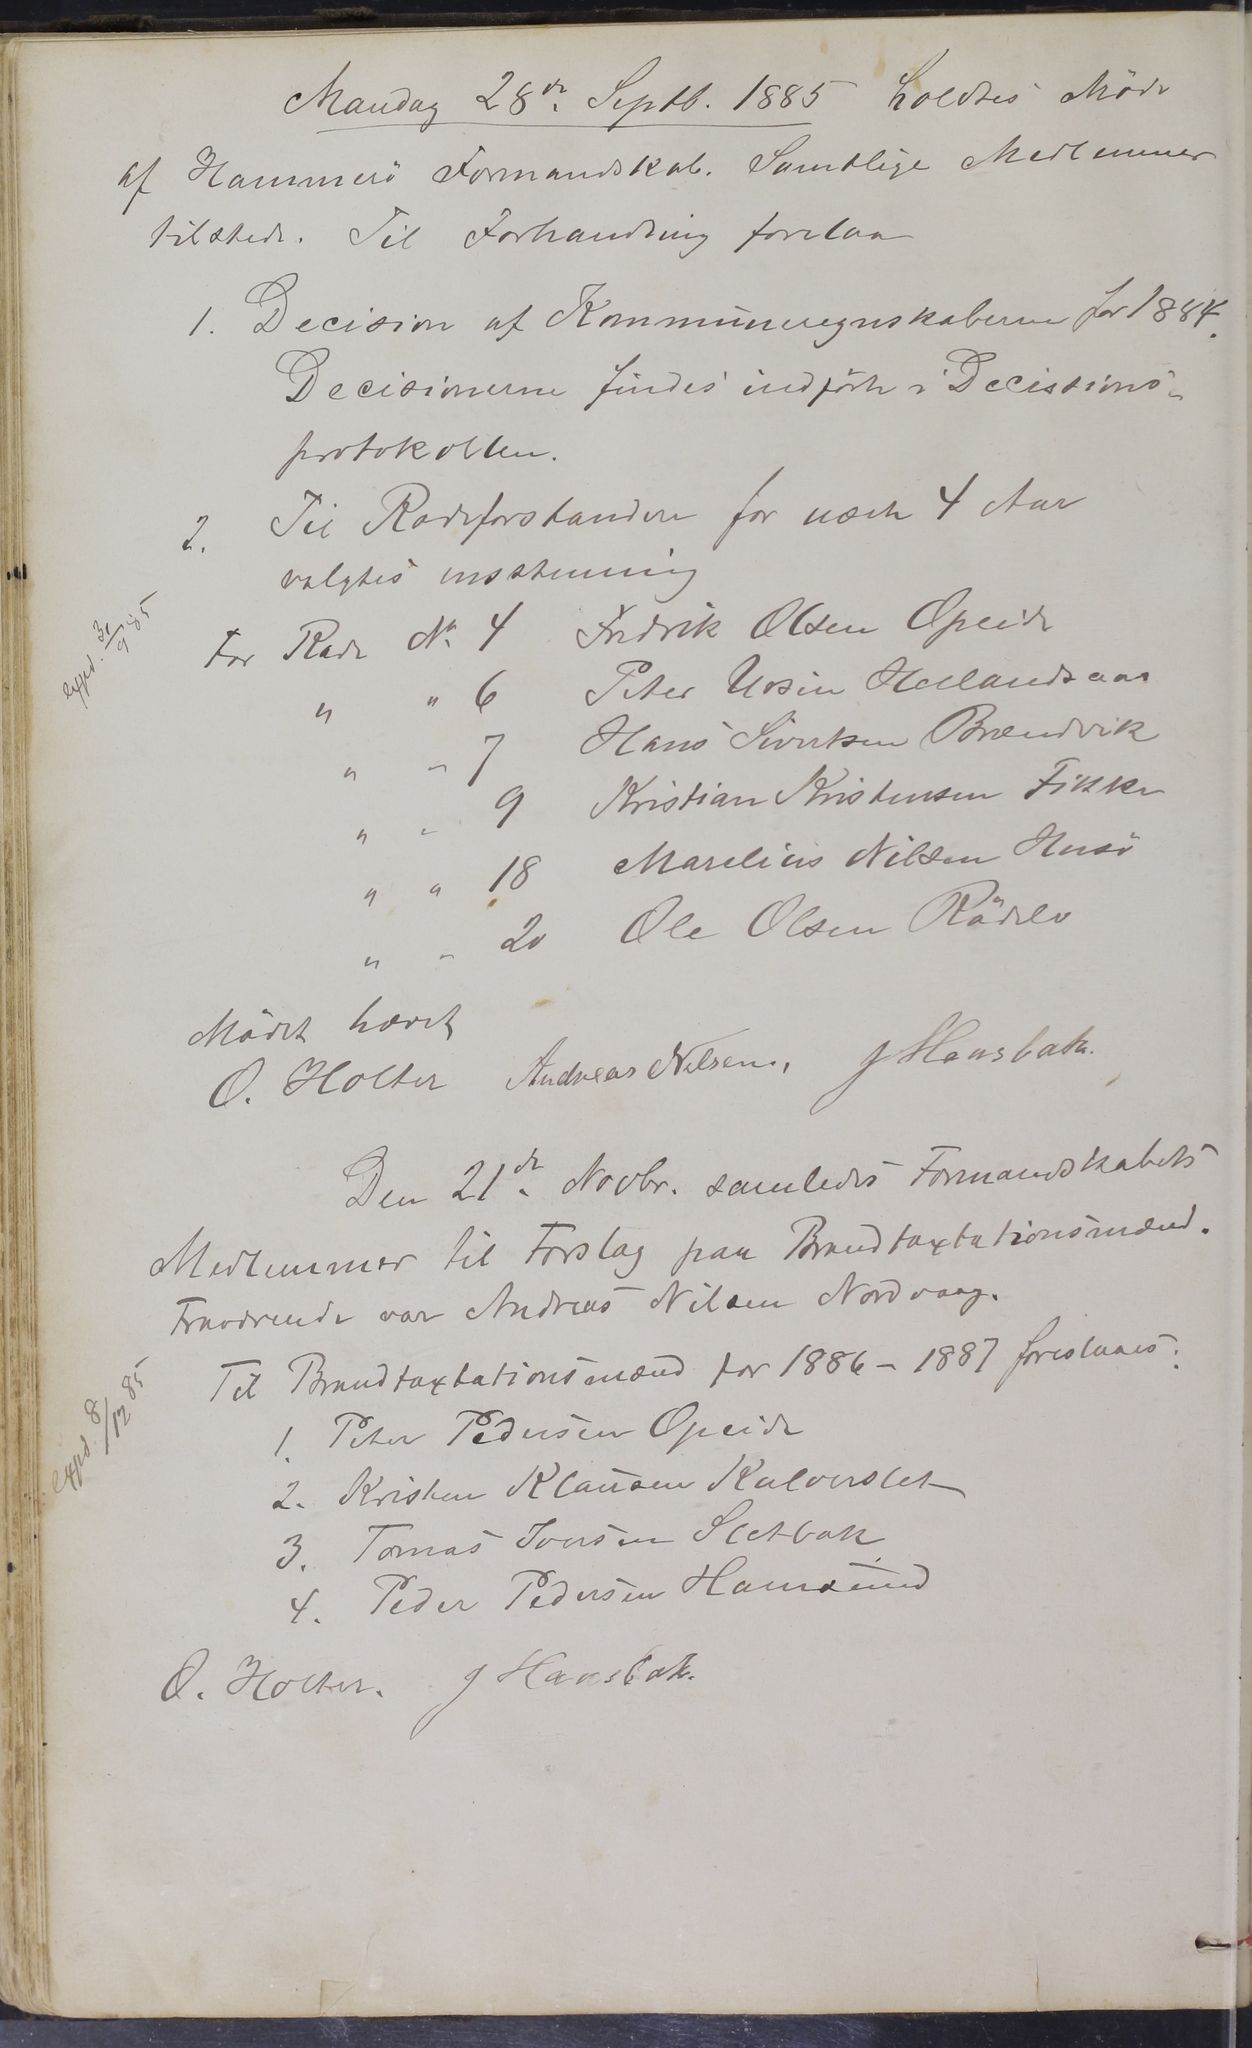 Mandag 28de Septb. 1885 holdtes Möde
af Hammerö Formandskab. Samtlige Medlemmer
tilstede. Til Forhandling forelaa
1. Decision af Kommuneregnskaberne for 1884.
Decisionerne findes indförte i Decissions-
protokollen.
2. Til Rodeforstandere for næste 4 Aar
valgtes enstemmig
For Rode No 4 Fredrik Olsen Opeide
" " 6 Peter Ursin Hellandsaas
" " 7 Hans Sivertsen Brændvik
" " 9 Kristian Kristensen Fikke
" " 18 Marelius Nilsen Husö
" " 20 Ole Olsen Rödelv
expd. 3/9 85
Mödet hævet
O. Holter Andreas Nilsen, J Haasbak.
Den 21de Novbr. samledes Formandskabets
Medlemmer til Forslag paa Brandtaxtationsmænd.
Fraværende var Andreas Nilsen Nordvaag.
Til Brandtaxtationsmænd for 1886 - 1887 foreslaaes:
expd. 8/12 85
1. Peter Pedersen Opeide
2. Kristen Klausen Kalverslet
3. Tomas Iversen Sletbak
4. Peder Pedersen Hamsund
O. Holter. J Haasbak.